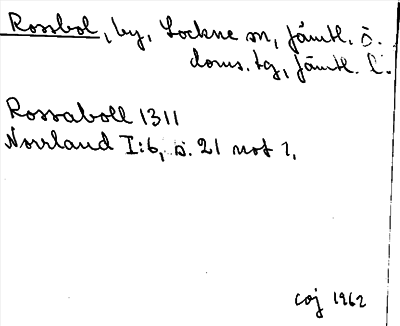 Rossbol, by, Lockne sn, Jämtl. ö.
doms. tg, Jämtl. l.
Rossaboll 1311
Norrland I:6, s. 21 not 2.
coj 1962